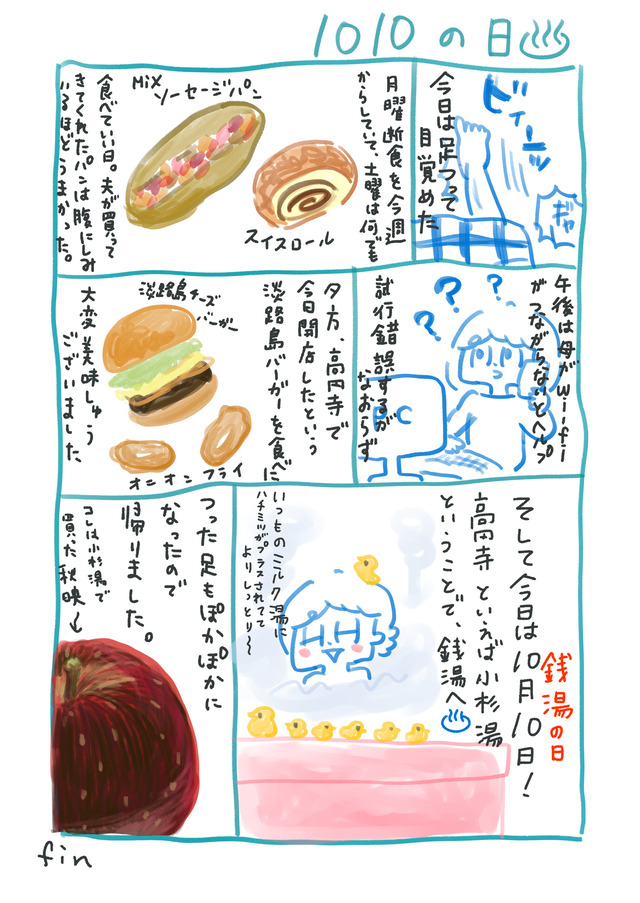 1010の日♨
ビィーーッ
ギャ
今日は足つって
目覚めた
月曜断食を今週
からしていて、土曜は何でも
MiX
ソーセージパン
スイスロール
食べていい日。夫が買って
きてくれたパンは腹にしみ
いるほどうまかった。
午後は母がwifi
がつながらないとヘルプ
? ? ?
試行錯誤するが
なおらず
PC
夕方、高円寺で
今日開店したという
淡路島バーガーを食べに
淡路島チーズ
バーガー
オニオンフライ
大変美味しゅう
ございました。
そして今日は10月10日!
銭湯の日
高円寺といえば小杉湯
ということで、銭湯へ♨
いつものミルク湯に
ハチミツがプラスされてて
よりしっとり〜
つった足もぽかぽかに
なったので
帰りました。
コレは小杉湯で
買った秋映↓
fin